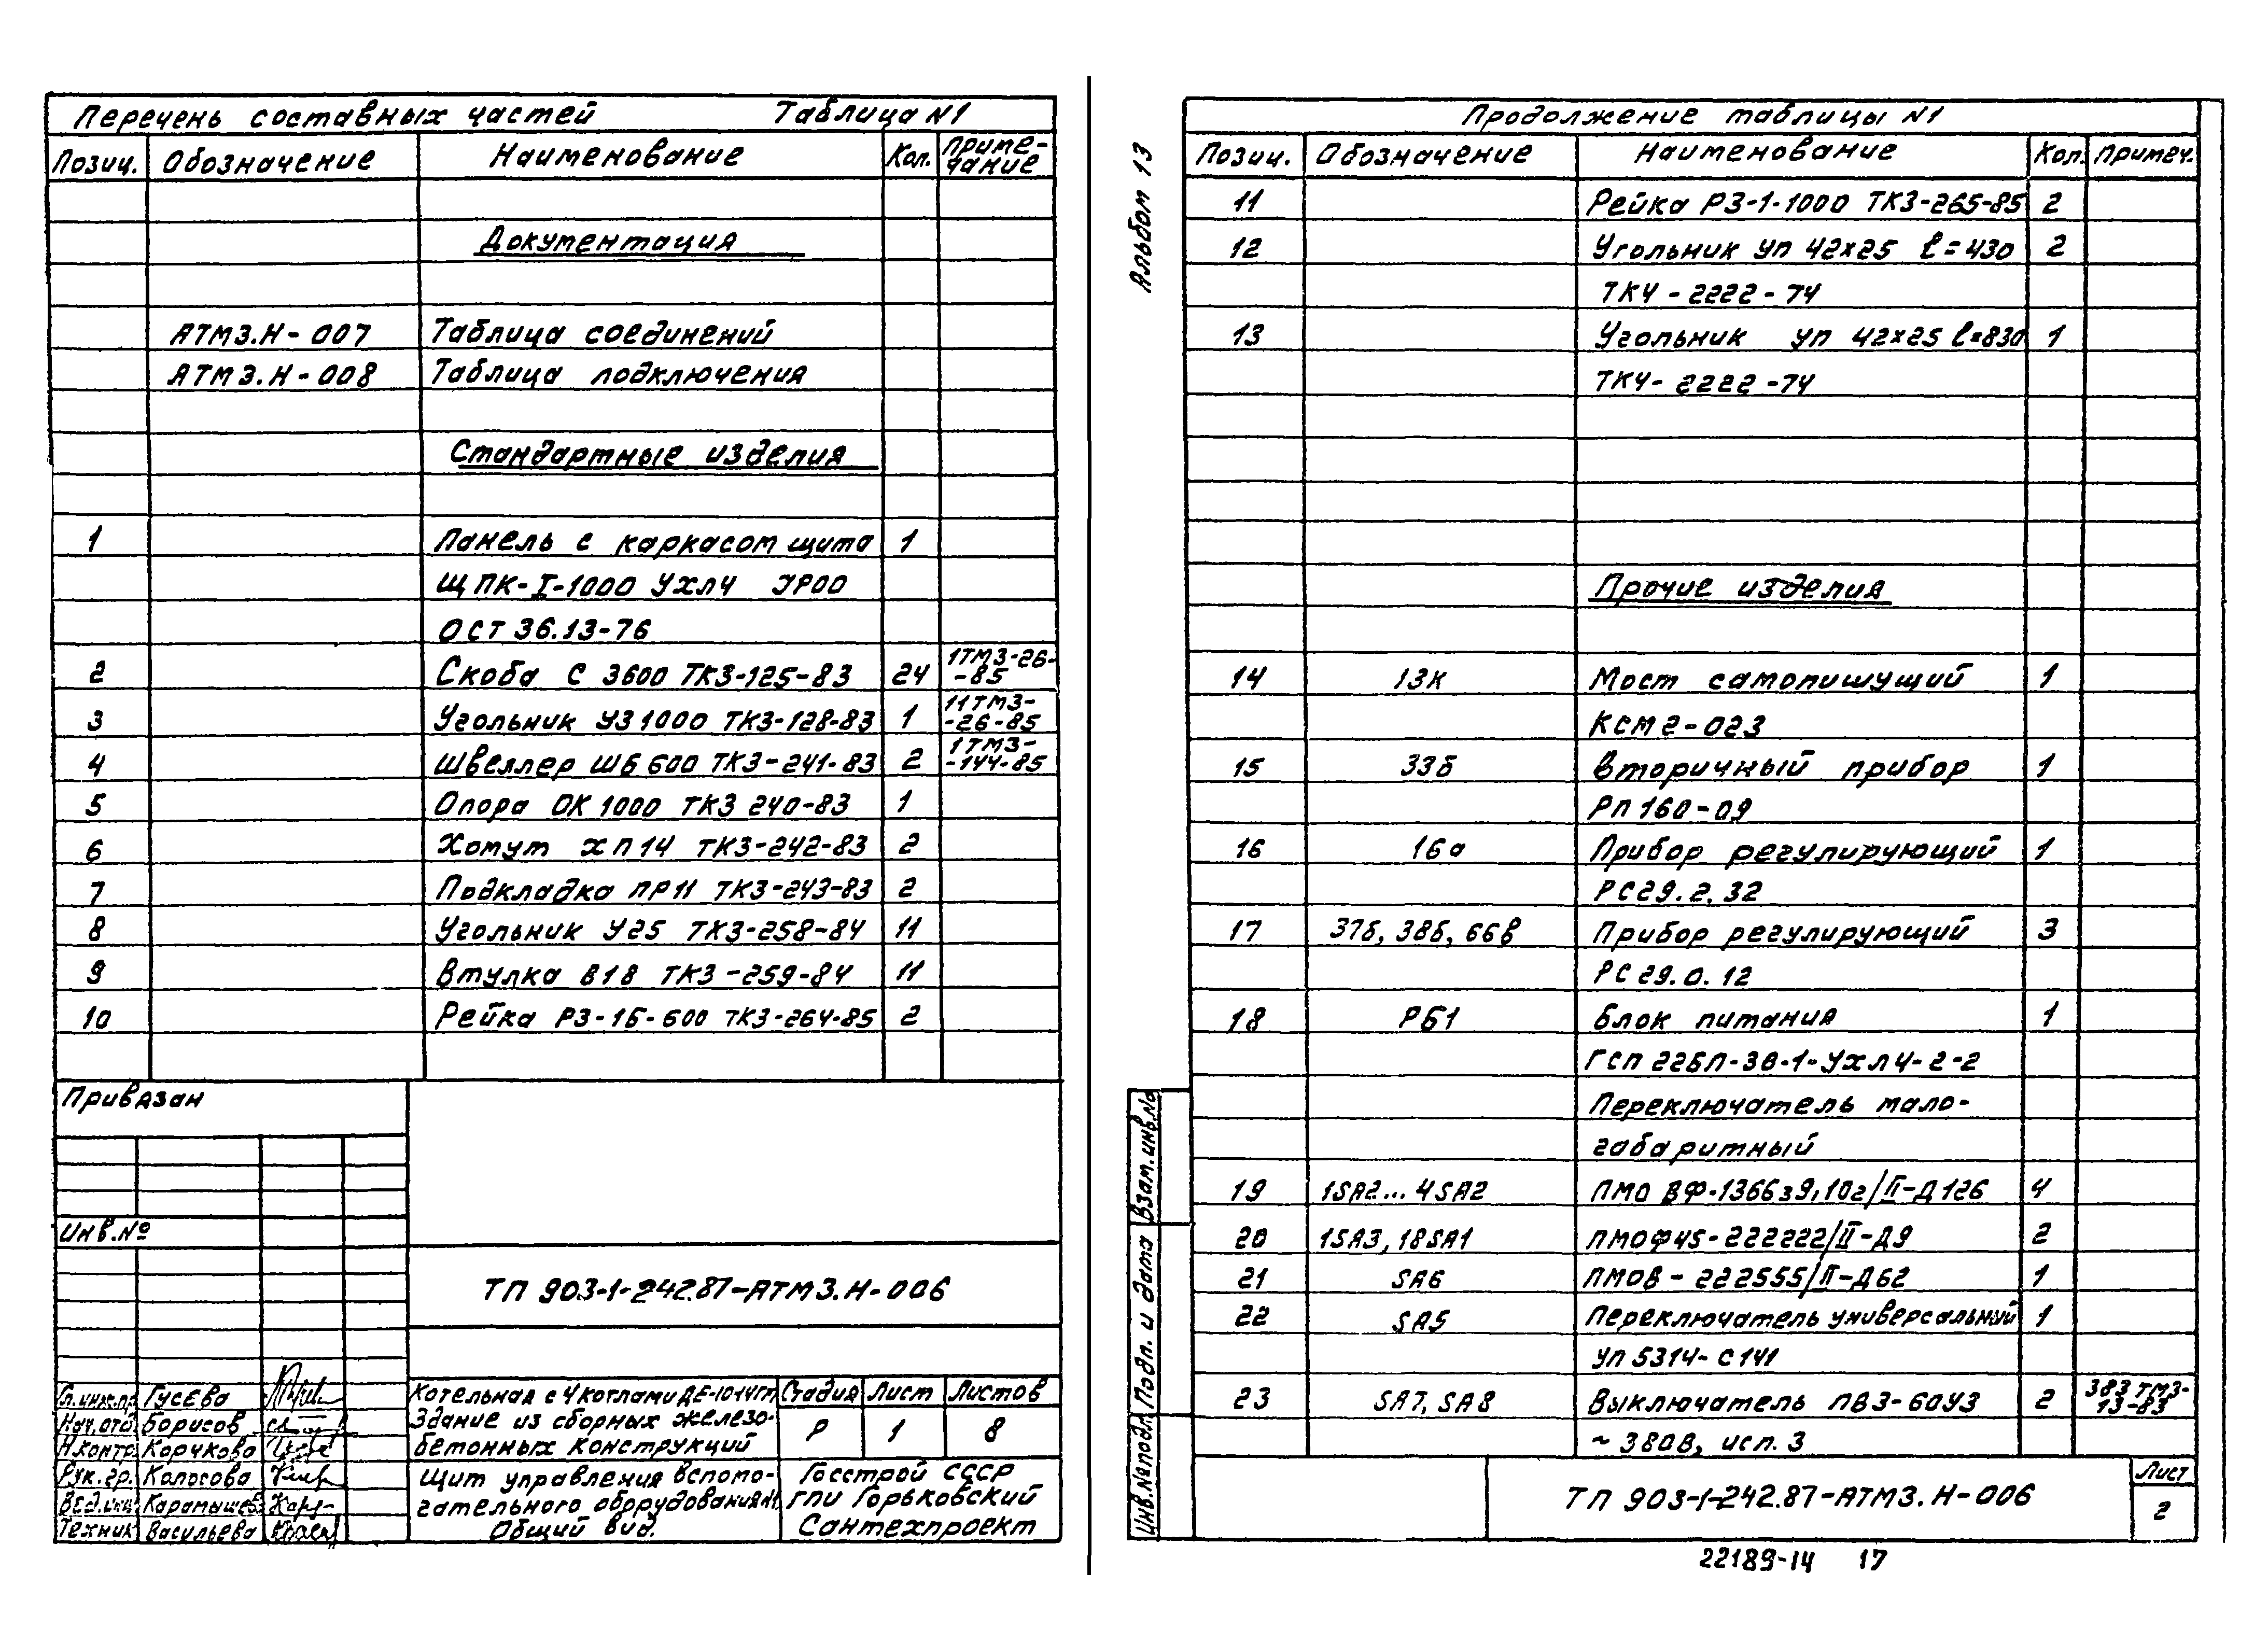 Перечень составных частей Таблица N1
Позиц. Обозначение Наименование Кол. Приме-
чание
Документация
АТМ3.Н-007 Таблица соединений
АТМ3.Н-008 Таблица подключения
Стандартные изделия
1 Панель с каркасом щита 1
ЩПК-I-1000 УХЛ4 IP00
ОСТ 36.13-76
2 Скоба С 3600 ТК3-125-83 24 1ТМ3-26-
-85
3 Угольник У31000 ТК3-128-83 1 11ТМ3-
-26-85
4 Швеллер ШБ 600 ТК3-241-83 2 1ТМ3-
-144-85
5 Опора ОК 1000 ТК3 240-83 1
6 Хомут ХП14 ТК3-242-83 2
7 Подкладка ПР11 ТК3-243-83 2
8 Угольник У25 ТК3-258-84 11
9 Втулка В18 ТК3-259-84 11
10 Рейка Р3-1Б-600 ТК3-264-85 2
Привязан
Инв.№
ТП 903-1-242.87-АТМ3.Н-006
Гл.инж.пр. Гусева
Нач.отд. Борисов
Н.контр. Корчкова
Рук.гр. Колосова
Вед.инж. Карамышева
Техник Васильева
Котельная с 4 котлами ДЕ-10-14ГМ
Здание из сборных железо-
бетонных конструкций
Стадия Лист Листов
Р 1 8
Щит управления вспомо-
гательного оборудования №1.
Общий вид.
Госстрой СССР
ГПИ Горьковский
Сантехпроект
Альбом 13
Продолжение таблицы N1
Позиц. Обозначение Наименование Кол. Примеч.
11 Рейка Р3-1-1000 ТК3-265-85 2
12 Угольник УП 42х25 ℓ=430 2
ТК4-2222-74
13 Угольник УП 42х25 ℓ=830 1
ТК4-2222-74
Прочие изделия
14 13к Мост самопишущий 1
КСМ2-023
15 33б Вторичный прибор 1
РП160-09
16 16а Прибор регулирующий 1
РС29.2.32
17 37б, 38б, 66в Прибор регулирующий 3
РС29.0.12
18 РБ1 Блок питания 1
ГСП 22БП-30-1-УХЛ4-2-2
Переключатель мало-
габаритный
19 1SA2...4SA2 ПМО ВФ-1366з9,10г/II-Д126 4
20 1SA3, 18SA1 ПМОФ45-222222/II-Д9 2
21 SA6 ПМОВ-222555/II-Д62 1
22 SA5 Переключатель универсальный 1
УП5314-С141
23 SA7, SA8 Выключатель ПВ3-60У3 2 383ТМ3-
13-83
~380В, исп.3
Взам.инв.№
Подп. и дата
Инв.№подл.
ТП 903-1-242.87-АТМ3.Н-006
Лист
2
22189-14 17